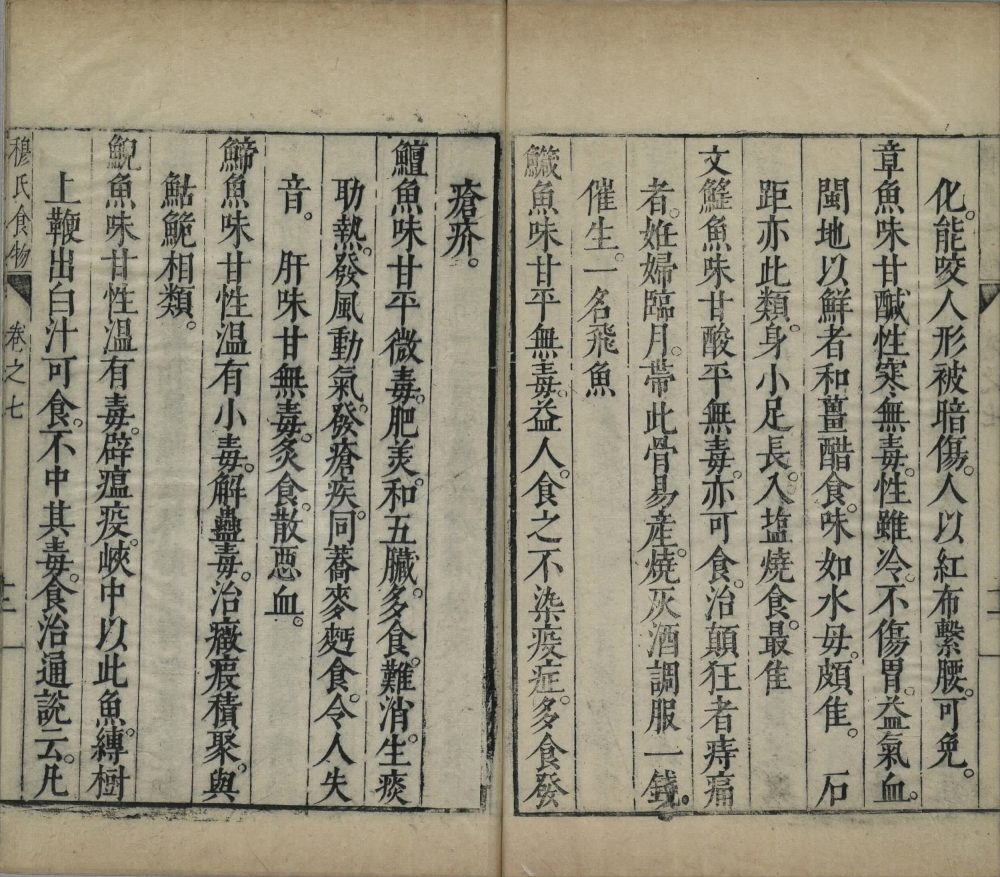 化。能咬人形被暗傷。人以紅布繫腰。可免。
章魚味甘鹹性寒無毒。性雖冷。不傷胃。益氣血。
閩地以鮮者和薑醋食。味如水母。頗隹。　石
距亦此類。身小足長。入塩燒食。最隹
文鰩魚味甘酸平無毒。亦可食。治顛狂者痔痛
者。妊婦臨月。帶此骨易產。燒灰酒調服一錢。
催生。一名飛魚
鱵魚味甘平無毒。益人。食之不染疫症。多食發
瘡疥。
鱣魚味甘平微毒。肥美。和五臟。多食。難消。生痰
助熱。發風動氣。發瘡疾。同蕎麥麪食。令人失
音。　肝味甘無毒。炙食。散惡血。
鯑魚味甘性溫有小毒。解蠱毒。治癥瘕積聚。與
鮎鮠相類。
鯢魚味甘性溫有毒。辟瘟疫。峽中以此魚。縛樹
上鞭出白汁可食。不中其毒。食治通說云。凡
穆氏食物
卷之七